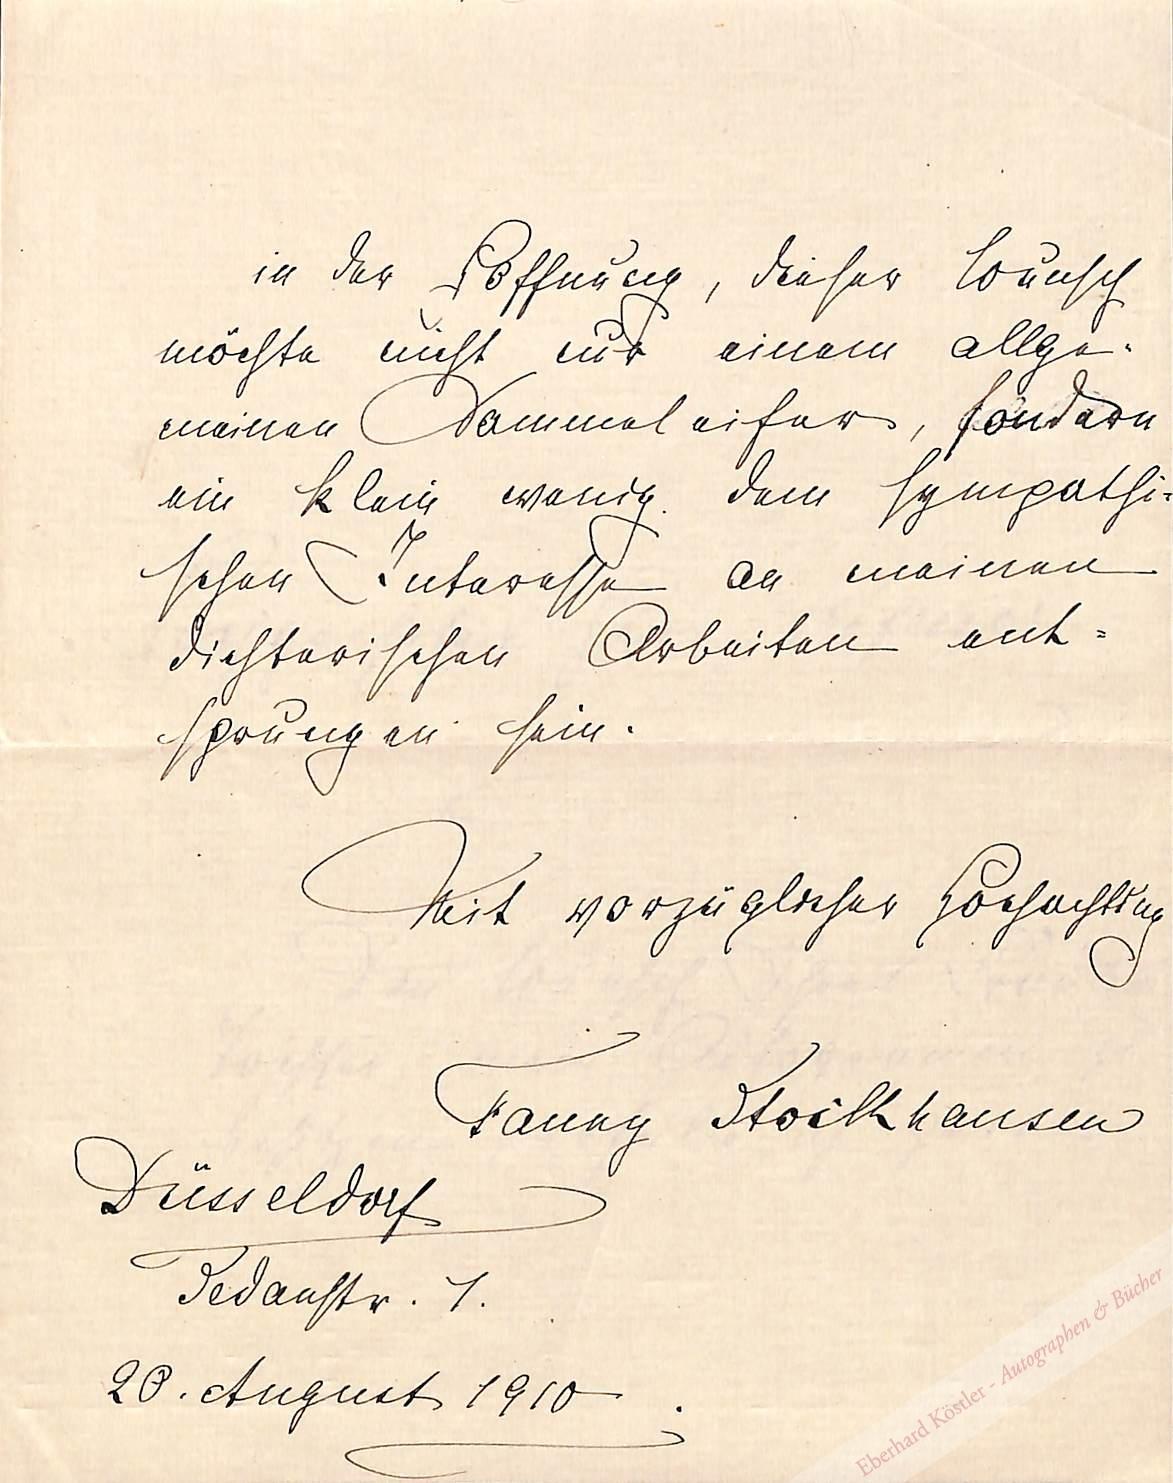 in der Hoffnung, dieser Wunsch
möchte nicht nur einem allge-
meinen Sammeleifer, sondern
ein klein wenig dem sympathi-
schen Interesse an meinen
dichterischen Arbeiten ent-
sprungen sein.
Mit vorzüglicher Hochachtung
Fanny Stockhausen
Düsseldorf
Sedanstr. 1.
20. August 1910.
Eberhard Köstler - Autographen & Bücher